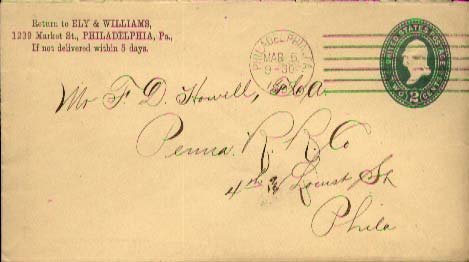 Return to ELY & WILLIAMS,
1239 Market St., PHILADELPHIA, Pa.,
If not delivered within 5 days.
PHILADELPHIA, PA.
MAR 5
9-30
UNITED STATES POSTAGE
TWO 2 CENTS
Mr F. D. Howell,
Penna. R. R. Co
4th & Locust St
Phila